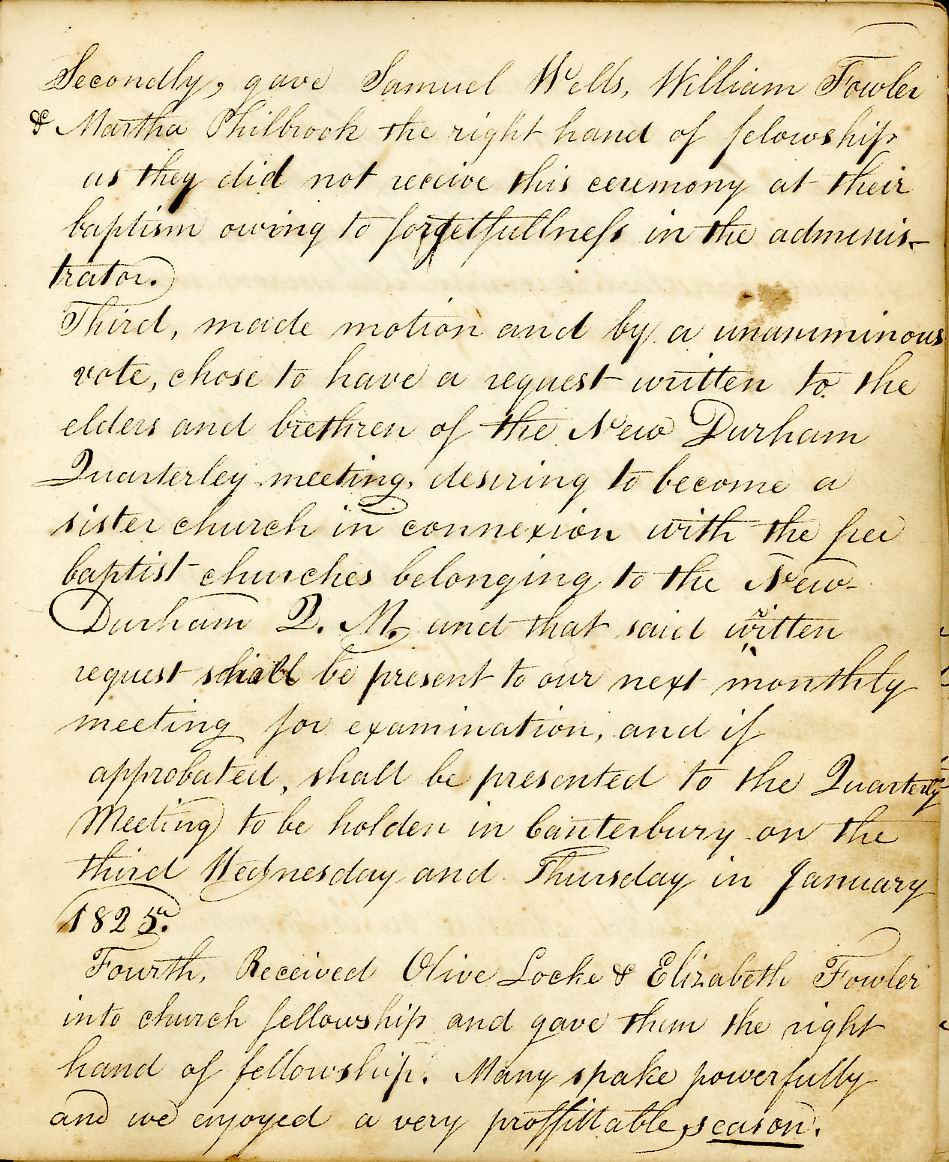 Secondly, gave Samuel Wells, William Fowler
& Martha Philbrook the right hand of felowship
as they did not receive this ceremony at their
baptism owing to forgetfullneſs in the adminis-
trator.
Third, made motion and by a unamminous
vote, chose to have a request written to the
elders and brethren of the New Durham
Quarterley meeting, desiring to become a
sister church in connexion with the free
baptist churches belonging to the New-
Durham Q. M. and that said written
request shall be present to our next monthly
meeting for examination, and if
approbated, shall be presented to the Quarterly
Meeting to be holden in Canterbury on the
third Wednesday and Thursday in January
1825.
Fourth, Received Olive Locke & Elizabeth Fowler
into church fellowship and gave them the right
hand of fellowship. Many spake powerfully
and we enjoyed a very proffittable season.